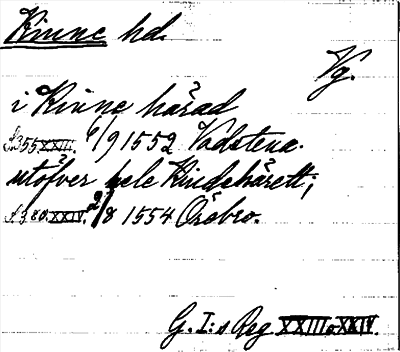 Kinne hd.
Vg.
i Kinne härad
s. 355 XXIII. 6/9 1552 Vadstena.
utöfver hele Kindehärett;
s. 380. XXIV. 2/8 1554 Örebro.
G. I:s Reg XXIII o XXIV.